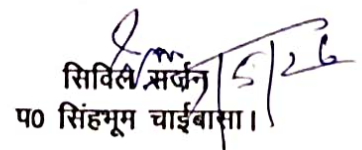 5/26
सिविल सर्जन
प0 सिंहभूम चाईबासा।